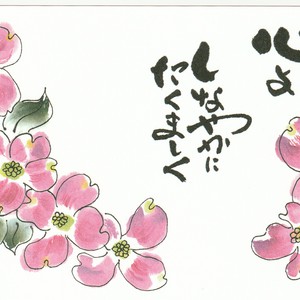 心よ
しなやかに
たくましく